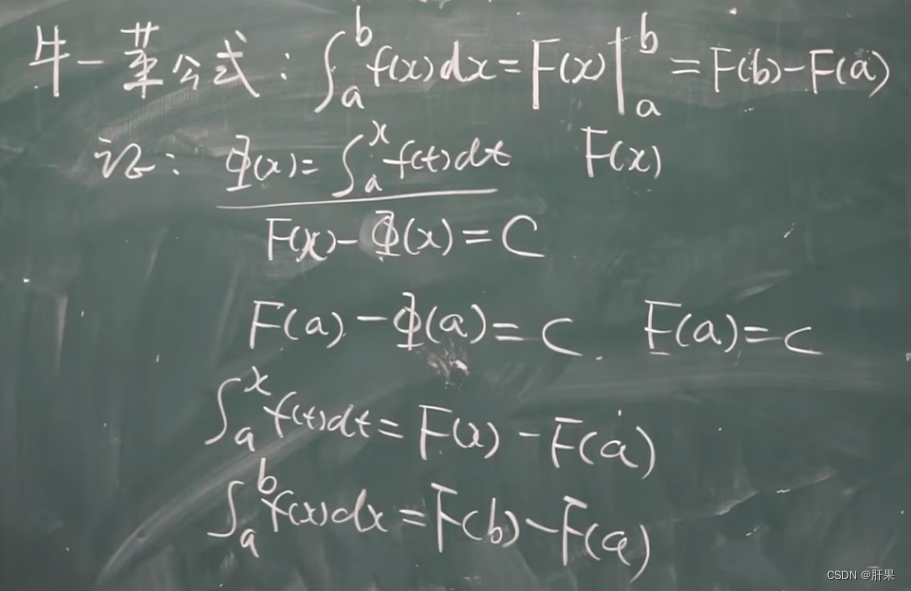 牛-莱公式: ∫_a^b f(x)dx = F(x)|_a^b = F(b)-F(a)
证: Φ(x)= ∫_a^x f(t)dt F(x)
F(x)-Φ(x)=C
F(a)-Φ(a)=C. F(a)=C
∫_a^x f(t)dt = F(x)-F(a)
∫_a^b f(x)dx = F(b)-F(a)
CSDN @肝果